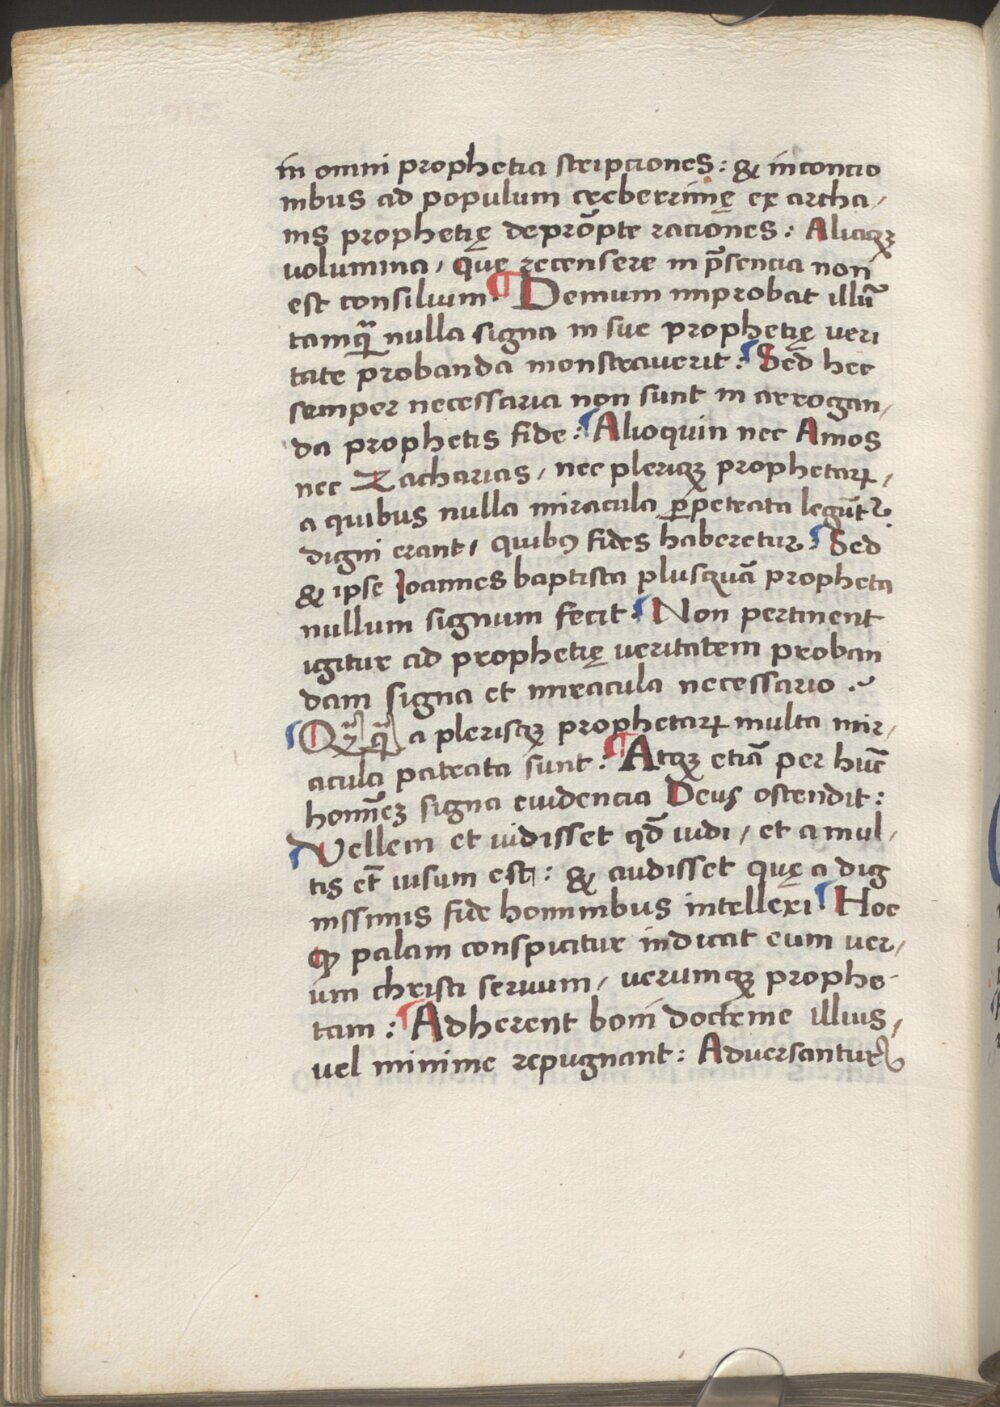 in omni prophetia scripciones : & in concio
nibus ad populum cręberrimę ex archa /
nis prophetię deprõpte raciones : Aliaqꝫ
uolumina / quę recensere in p̄sencia non
est consilium . ¶ Demum improbat illũ
tamqᷓ nulla signa in sue prophetię veri
tate probanda monstrauerit : ¶ Sed hec
semper necessaria non sunt in arrogan /
da prophetis fide : ¶ Alioquin nec Amos
nec Zacharias / nec pleriqꝫ prophetaꝝ /
a quibus nulla miracula ꝑpetrata legũtᷣ
digni erant / quibꝰ fides haberetur : ¶ Sed
& ipse Ioannes baptista plusquã propheta
nullum signum fecit : ¶ Non pertinent
igitur ad prophetię veritatem proban
dam signa et miracula necessario .
¶ Qᷓqᷓ a plerisqꝫ prophetaꝝ multa mir /
acula patrata sunt : ¶ Atqꝫ etiã per hũc
homīeꝫ signa euidencia Deus ostendit :
¶ Vellem et uidisset qđ uidi / et a mul /
tis et̄ uisum est : & audisset quę a dig
nissimis fide hominibus intellexi : ¶ Hoc
ꝙ palam conspicitur indicat eum uer /
um christi seruum / uerumqꝫ prophe -
tam : ¶ Adherent boni doctrine illius /
vel minime repugnant : Aduersantur